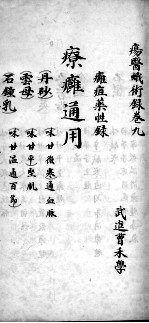 瘍醫蛾術錄卷九
武進曹禾學
癰疽藥性錄
療癰通用
丹砂 味甘微寒通血脈
雲母 味甘平堅肌
石鐘乳 味甘溫通百節